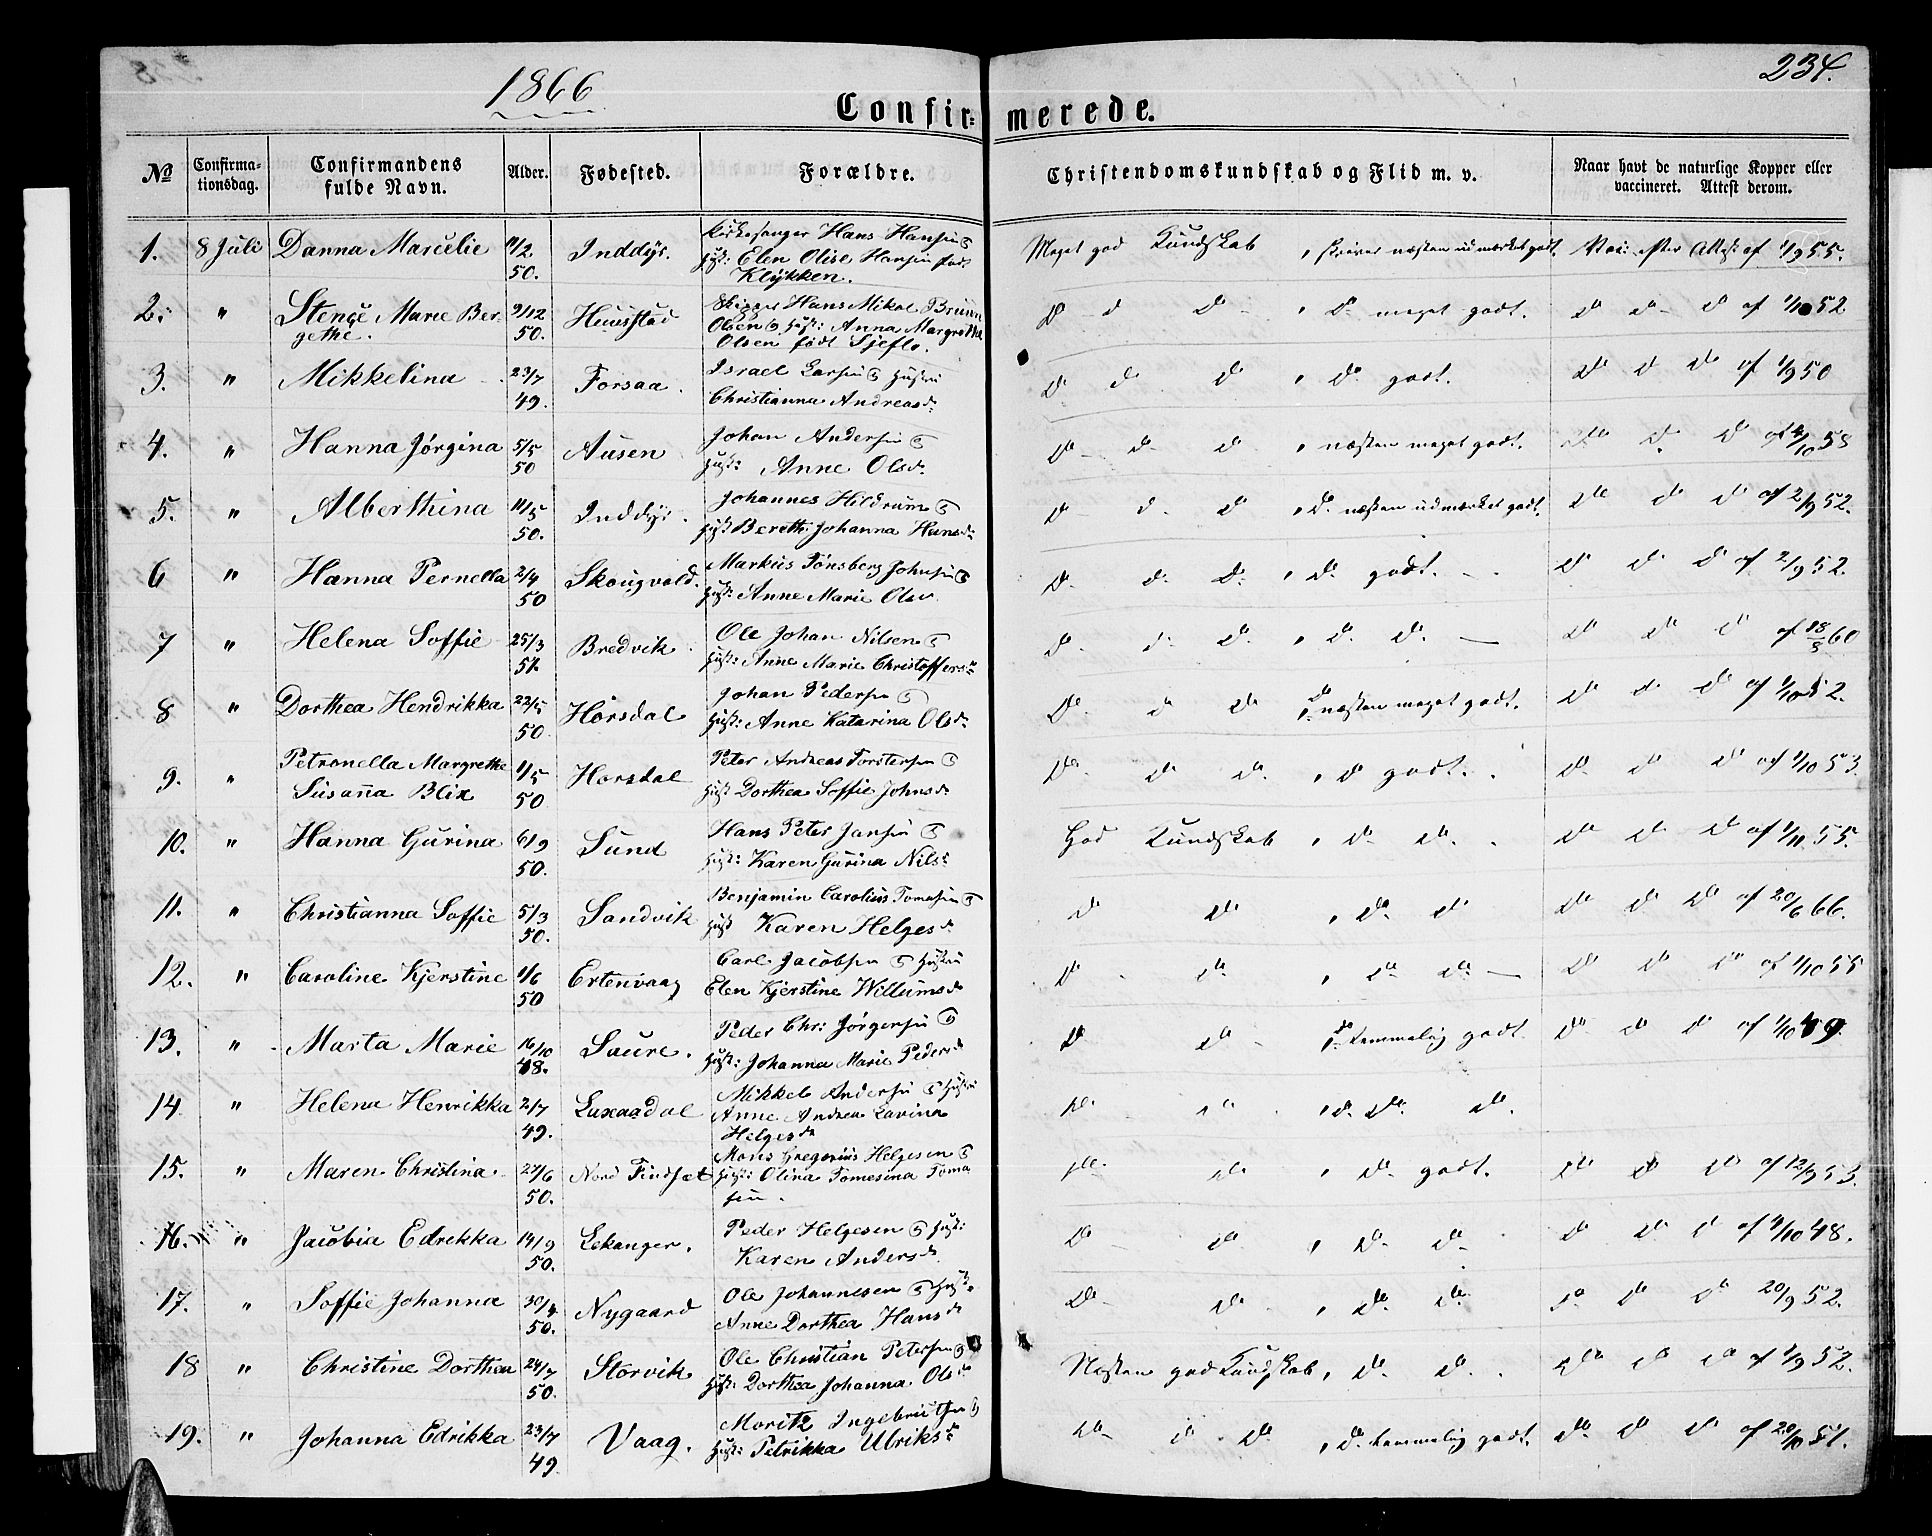 1866
234.
Confirmerede.
No
Confirmationsdag.
Confirmandens fulde Navn.
Alder.
Fødested.
Forældre.
Christendomskundskab og Flid m. v.
Naar havt de naturlige Kopper eller vaccineret. Attest derom.
1. 8 Juli Danna Marcelie 11/2 50. Inddyr. Kirkesanger Hans Hansen & Hust: Elen Olise Hansen født Klykken. Meget god Kundskab, skriver næsten udmærket godt. Vac: efter Attest af 1/9 55.
2. " Stence Marie Bergethe. 9/12 50. Huusstad Skipper Hans Mikal Bruun Olsen & Hust: Anna Margrethe Olsen født Sjeflo. Do do Do, Do meget godt. Do do do af 1/10 52
3. " Mikkelina 23/7 49. Forsaa. Israel Larsen & Hustru Christianna Andreasd. Do do do, Do godt. Do do Do af 1/9 50
4. " Hanna Jørgina 5/5 50 Ausen Johan Andersen & Hust: Anne Olsd. Do do do, næsten meget godt. Do do do
5. " Alberthina 11/5 50. Inddyr. Johannes Hildrum & Hust Bereth Johanna Hansd. Do do do, Do næsten udmærket godt. Do do do af 2/9 52.
6 " Hanna Pernella 2/4 50 Skougvold. Markus Tønsberg Johnsen & Hust: Anne Marie Olsd. Do do do, Do godt. Do do do af 2/9 52.
7 " Helena Soffie 25/3 51. Bredvik Ole Johan Nilsen & Hust: Anne Marie Christoffersd. Do do do, Do Do. Do do do af 60
8 " Dorthea Hendrikka 22/5 50. Horsdal Johan Pedersen & Hust: Anne Katarina Olsd. Do do do, Do næsten meget godt. Do do do af 1/10 52.
9. " Petronella Margrethe Susanna Blix 1/5 50 Horsdal Peter Andreas Torstersen & Hust Dorthea Soffie Johnsd. Do do do, do godt. Do do do af 1/10 53.
10. " Hanna Gurina 6/9 50. Sund Hans Peter Jansen & Hust: Karen Gurina Nilsd. God Kundskab, Do Do. Do do do af 1/11 55.
11. " Christianna Soffie 5/3 50. Sandvik Benjamin Carolius Tomesen & Hust Karen Helgesd. Do do, Do do Do do Do af 20/6 66.
12. " Caroline Kjerstine 1/6 50 Ertenvaag Carl Jacobsen & Hustru Elen Kjerstine Willumsd. Do do, do do Do do do af 1/10 55
13. " Marta Marie 16/10 48. Saure. Peder Chr: Jørgensen & Hust: Johanna Marie Pedersd. Do do, do temmelig godt. Do do do af 1/10 49.
14 " Helena Henrikka 2/7 49. Luxaadal Mikkel Andersen & Hustru Anne Andrea Lavina Helgesd. Do ", do Do. do.
15. " Maren Christina. 27/6 50. Nord Findset Mons Gregorius Helgesen & Hust: Olina Tomesina Tomasen. Do do, Do godt. Do do do af 12/9 53.
16. " Jacobia Edrekka 14/9 50. Lekanger. Peder Helgesen & Hust: Karen Andersd. Do do, Do Do. Do do do af 9/10 48.
17. " Soffie Johanna 30/4 50. Nygaard Ole Johannesen & Hust. Anne Dorthea Hansd. Do do, do do Do do do 20/9 52.
18 " Christine Dorthea 24/7 50. Storvik Ole Christian Petersen & Hust: Dorthea Johanna Olsd. Næsten god Kundskab, do. do. Do do do af 1/9 52.
19. " Johanna Edrikka 23/7 49 Vaag. Moritz Ingebrigtsen & Hust: Petrikka Ulriksd. Do do Do, do temmelig godt. Do do do af 20/10 51.